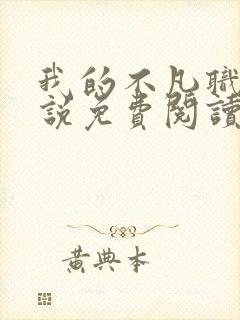 我的不凡職
說免費閱讀
黃典本